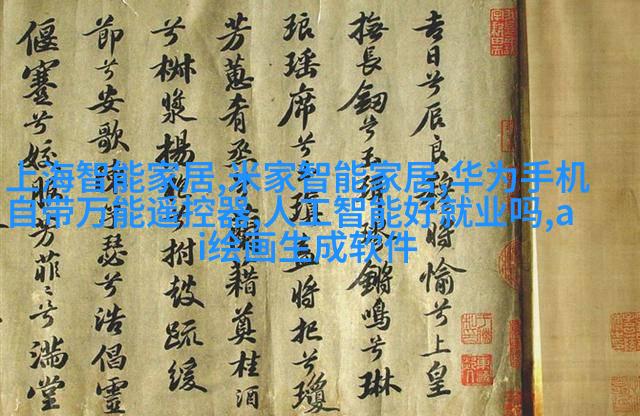 上海智能家居,米家智能家居,华为手机
自带万能遥控器,人工智能好就业吗,a
i绘画生成软件
吉日兮辰良穆將愉兮上皇
撫長釼兮玉珥璆鏘鳴兮琳
琅瑤席兮玉瑱盍將把兮瓊
芳蕙肴烝兮蘭藉奠桂酒
兮椒漿揚枹兮拊鼓疏緩
節兮安歌陳竽瑟兮浩倡靈
偃蹇兮姣服芳菲〻兮滿堂